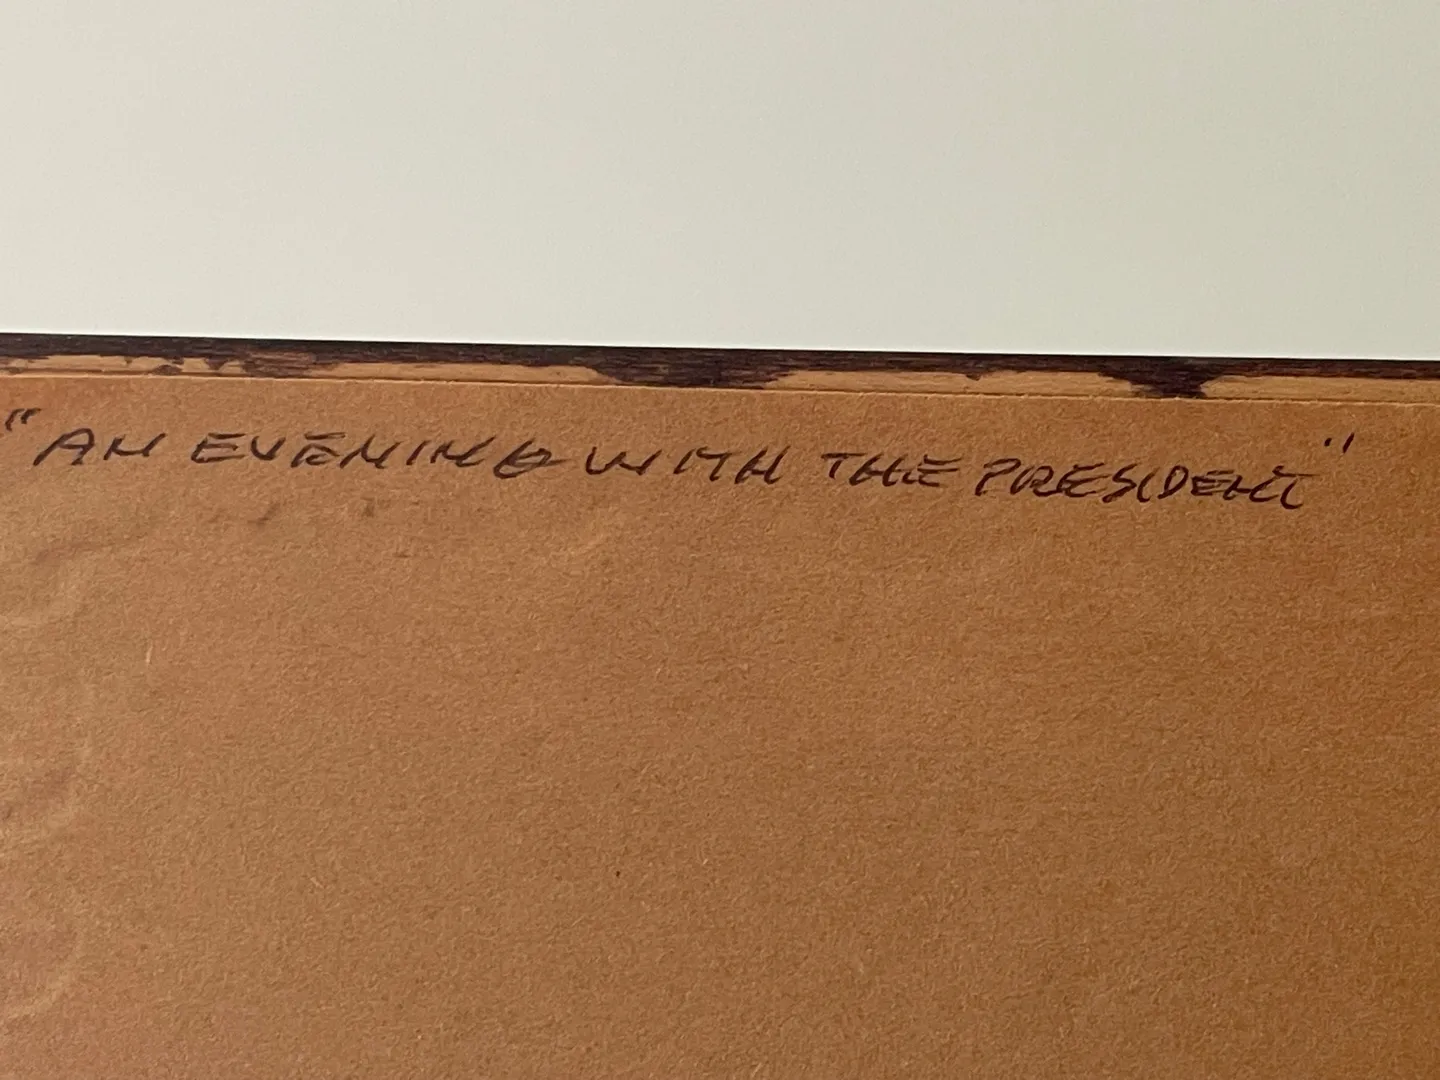 "AN EVENING WITH THE PRESIDENT"